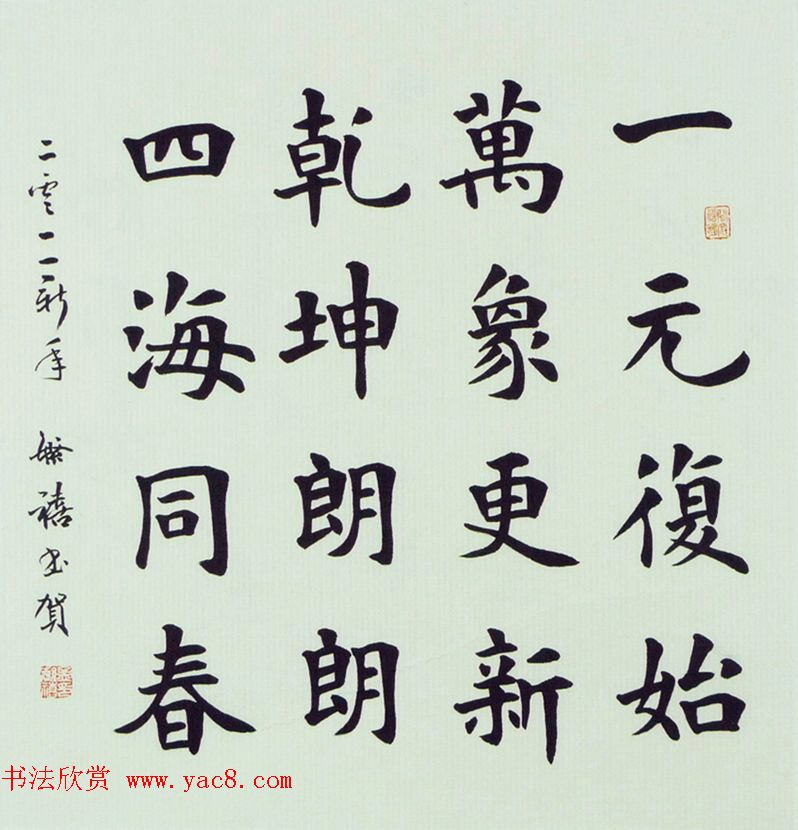 一元復始
萬象更新
乾坤朗朗
四海同春
二零一一新年 無禧书賀
书法欣赏 www.yac8.com